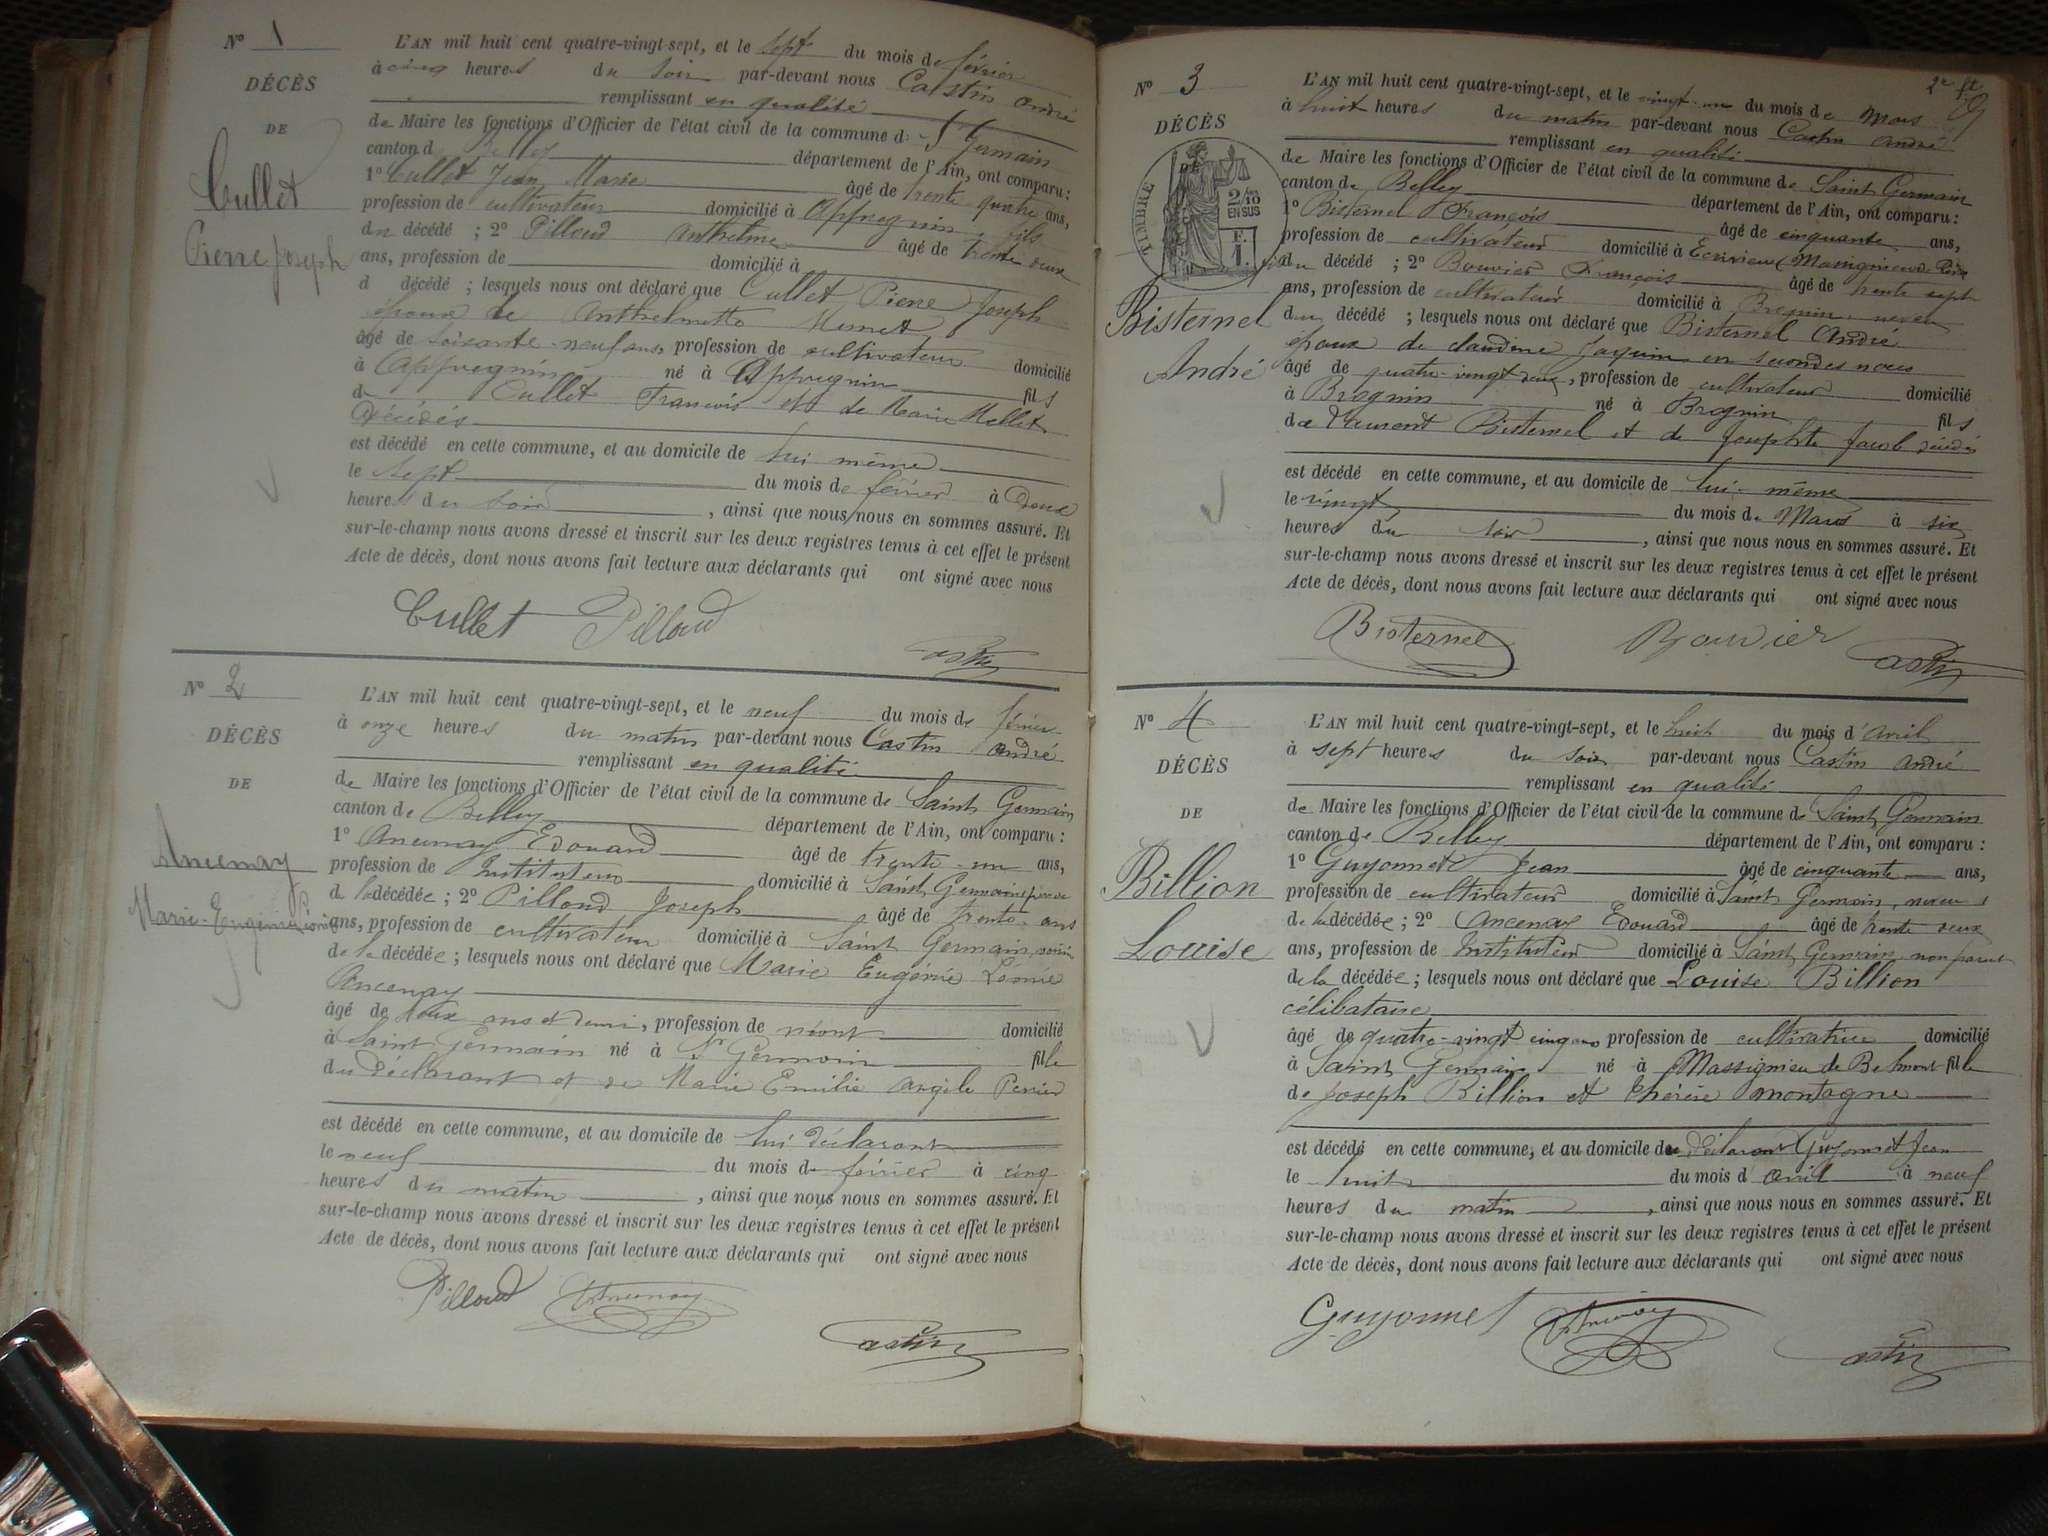 N° 1
DÉCÈS
DE
Cullet
Pierre Joseph
L'AN mil huit cent quatre-vingt-sept, et le sept du mois de février
à cinq heures du soir par-devant nous Castin André
remplissant en qualité
de Maire les fonctions d'Officier de l'état civil de la commune d St Germain
canton d Belley département de l'Ain, ont comparu :
1° Cullet Jean Marie âgé de trente quatre ans,
profession de cultivateur domicilié à Appregnin, fils
du décédé ; 2° Pilloud Anthelme âgé de trente deux
ans, profession de domicilié à
d décédé ; lesquels nous ont déclaré que Cullet Pierre Joseph
époux de Anthelmette
âgé de soixante-neuf ans, profession de cultivateur domicilié
à Appregnin né à Appregnin fils
de Cullet François et de Marie Mellet
décédés
est décédé en cette commune, et au domicile de lui même
le sept du mois de février à deux
heures du soir, ainsi que nous nous en sommes assuré. Et
sur-le-champ nous avons dressé et inscrit sur les deux registres tenus à cet effet le présent
Acte de décès, dont nous avons fait lecture aux déclarants qui ont signé avec nous
Cullet Pilloud
Castin
N° 2
DÉCÈS
DE
Ancenay
Marie-Eugénie Léonie
L'AN mil huit cent quatre-vingt-sept, et le neuf du mois de février
à onze heures du matin par-devant nous Castin André
remplissant en qualité
de Maire les fonctions d'Officier de l'état civil de la commune de Saint Germain
canton de Belley département de l'Ain, ont comparu :
1° Ancenay Edouard âgé de trente-un ans,
profession de Instituteur domicilié à Saint Germain père
de la décédée ; 2° Pilloud Joseph âgé de trente ans
ans, profession de cultivateur domicilié à Saint Germain, voisin
de la décédée ; lesquels nous ont déclaré que Marie Eugénie Léonie
Ancenay
âgé de deux ans et demi, profession de néant domicilié
à Saint Germain né à St Germain fille
du déclarant et de Marie Emilie Argile Perrier
est décédé en cette commune, et au domicile de lui déclarant
le neuf du mois de février à cinq
heures du matin, ainsi que nous nous en sommes assuré. Et
sur-le-champ nous avons dressé et inscrit sur les deux registres tenus à cet effet le présent
Acte de décès, dont nous avons fait lecture aux déclarants qui ont signé avec nous
Pilloud Ancenay
Castin
2e ft
N° 3
DÉCÈS
DE
TIMBRE
2/10
EN SUS
F.
1.
Bisternel
André
L'AN mil huit cent quatre-vingt-sept, et le vingt-un du mois de Mars
à huit heures du matin par-devant nous Castin André
remplissant en qualité
de Maire les fonctions d'Officier de l'état civil de la commune de Saint Germain
canton de Belley département de l'Ain, ont comparu :
1° Bisternel François âgé de cinquante ans,
profession de cultivateur domicilié à Ecrivieu (Massignieu de Rives
fils du décédé ; 2° Bouvier François âgé de trente sept
ans, profession de cultivateur domicilié à Brognin, neveu
du décédé ; lesquels nous ont déclaré que Bisternel André
époux de Claudine Jaquin en secondes noces
âgé de quatre-vingt deux, profession de cultivateur domicilié
à Brognin né à Brognin fils
de Laurent Bisternel et de Josephte Jacob décédés
est décédé en cette commune, et au domicile de lui-même
le vingt du mois de Mars à six
heures du soir, ainsi que nous nous en sommes assuré. Et
sur-le-champ nous avons dressé et inscrit sur les deux registres tenus à cet effet le présent
Acte de décès, dont nous avons fait lecture aux déclarants qui ont signé avec nous
Bisternel Bouvier
Castin
N° 4
DÉCÈS
DE
Billion
Louise
L'AN mil huit cent quatre-vingt-sept, et le huit du mois d'avril
à sept heures du soir par-devant nous Castin André
remplissant en qualité
de Maire les fonctions d'Officier de l'état civil de la commune de Saint Germain
canton de Belley département de l'Ain, ont comparu :
1° Guyonnet Jean âgé de cinquante ans,
profession de cultivateur domicilié à Saint Germain, neveu
de la décédée ; 2° Ancenay Edouard âgé de trente deux
ans, profession de Instituteur domicilié à Saint Germain, non parent
de la décédée ; lesquels nous ont déclaré que Louise Billion
célibataire
âgé de quatre-vingt cinq ans profession de cultivatrice domicilié
à Saint Germain né à Massignieu de Belmont fille
de Joseph Billion et Thérèse Montagne
est décédé en cette commune, et au domicile du déclarant Guyonnet Jean
le huit du mois d avril à neuf
heures du matin, ainsi que nous nous en sommes assuré. Et
sur-le-champ nous avons dressé et inscrit sur les deux registres tenus à cet effet le présent
Acte de décès, dont nous avons fait lecture aux déclarants qui ont signé avec nous
Guyonnet Ancenay
Castin